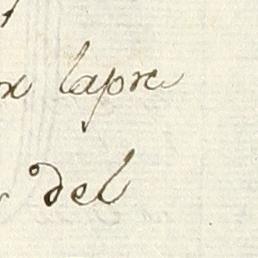 lapre
del